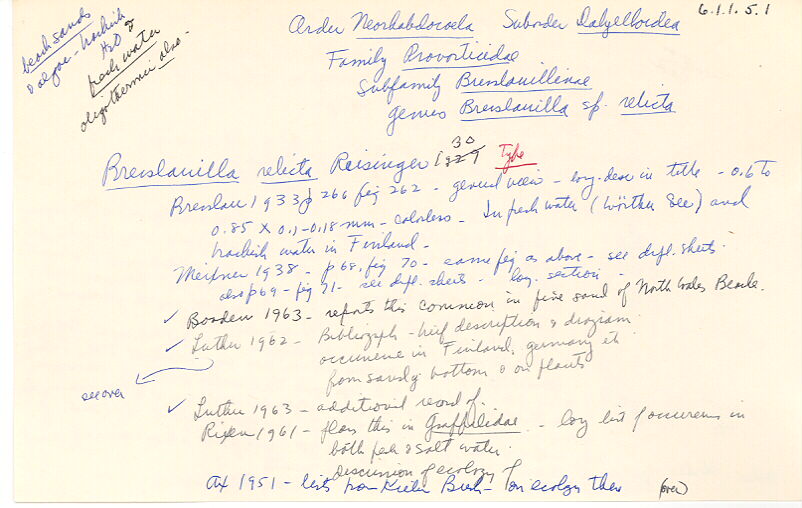 6.1.1.5.1
beach sands
& algae - brackish
H2O &
fresh water
oligothermic also -
Order Neorhabdocoela Suborder Dalyellioidea
Family Provorticidae
Subfamily Bresslauillinae
genus Bresslauilla sp. relicta
Bresslauilla relicta Reisinger 1929 30 Type
Bresslau 1933 p 266 fig 262 - general view - long. desc in title - 0.6 to
0.85 x 0.1-0.18 mm - colorless - In fresh water (Wörther See) and
brackish water in Finland -
Meixner 1938 - p 68, fig 70 - same fig as above - see dupl. sheets
also p 69 - fig 71 - see dupl. sheets - long. section -
✓ Boaden 1963 - reports this common in fine sand of North Wales Beache.
✓ Luther 1962 - Bibliogrph - brief description & diagram
occurrence in Finland, Germany etc
from sandy bottom & on plants
see over
✓ Luther 1963 - additional record of.
Rixen 1961 - places this in Graffillidae - long list of occurrens in
both fresh & salt water.
Discussion of ecology of
Ax 1951 - lists from Kieler Bucht - on ecology there (over)